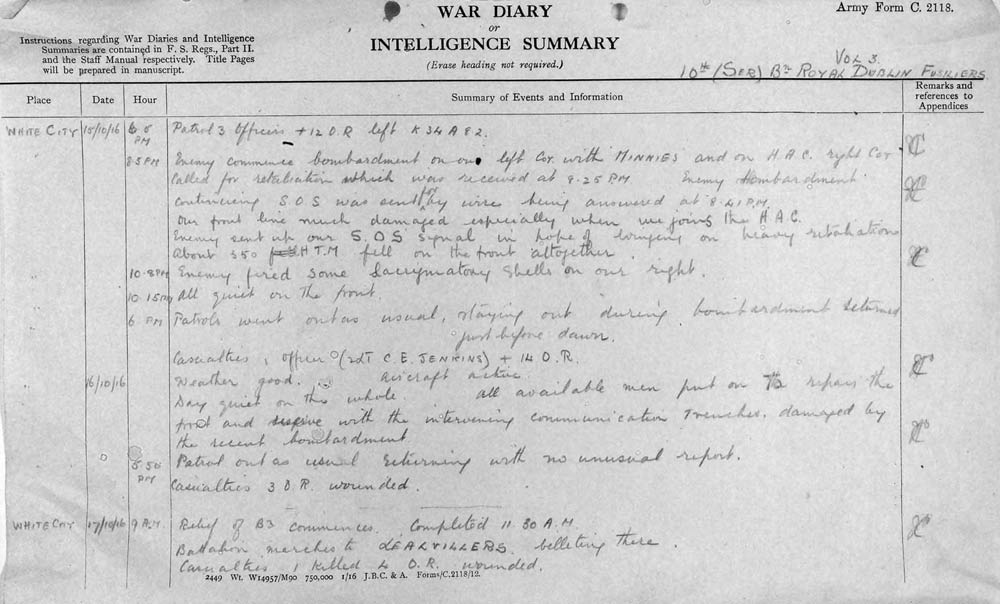 WAR DIARY
or
INTELLIGENCE SUMMARY
(Erase heading not required.)
Army Form C. 2118.
Instructions regarding War Diaries and Intelligence
Summaries are contained in F. S. Regs., Part II.
and the Staff Manual respectively. Title Pages
will be prepared in manuscript.
VOL 3.
10th (SER) Bn ROYAL DUBLIN FUSILIERS
Place Date Hour Summary of Events and Information Remarks and
references to
Appendices
WHITE CITY 15/10/16 6.0 PM Patrol 3 Officers + 12 O.R left K 34 A 8 2.
8.5 PM Enemy commence bombardment on our left Coy. with MINNIES and on H.A.C. right Coy
Called for retaliation which was received at 8.25 PM Enemy bombardment
continuing S.O.S was sent by wire being answered at 8.41 P.M.
Our front line much damaged especially when we joins the H.A.C.
Enemy sent up our S.O.S signal in hope of bringing on heavy retaliations
About 350 H.T.M fell on the front altogether.
10.8 PM Enemy fired some Lacrymatory Shells on our right.
10.15 PM All quiet on the front.
6 PM Patrols went out as usual, staying out during bombardment returned
just before dawn.
Casualties 1 officer (2dT C.E. JENKINS) + 14 O.R.
16/10/16 Weather good. Aircraft active
Day quiet on the whole. All available men put on to repair the
front and with the intervening communication Trenches, damaged by
the recent bombardment
5.50 PM Patrol out as usual returning with no unusual report.
Casualties 3 O.R. wounded.
WHITE CITY 17/10/16 9 A.M. Relief of B3 commences. Completed 11.30 A.M.
Battalion marches to LEALVILLERS, belleting there.
Casualties 1 killed 4 O.R. wounded.
2449 Wt. W14957/M90 750,000 1/16 J.B.C. & A. Forms/C.2118/12.